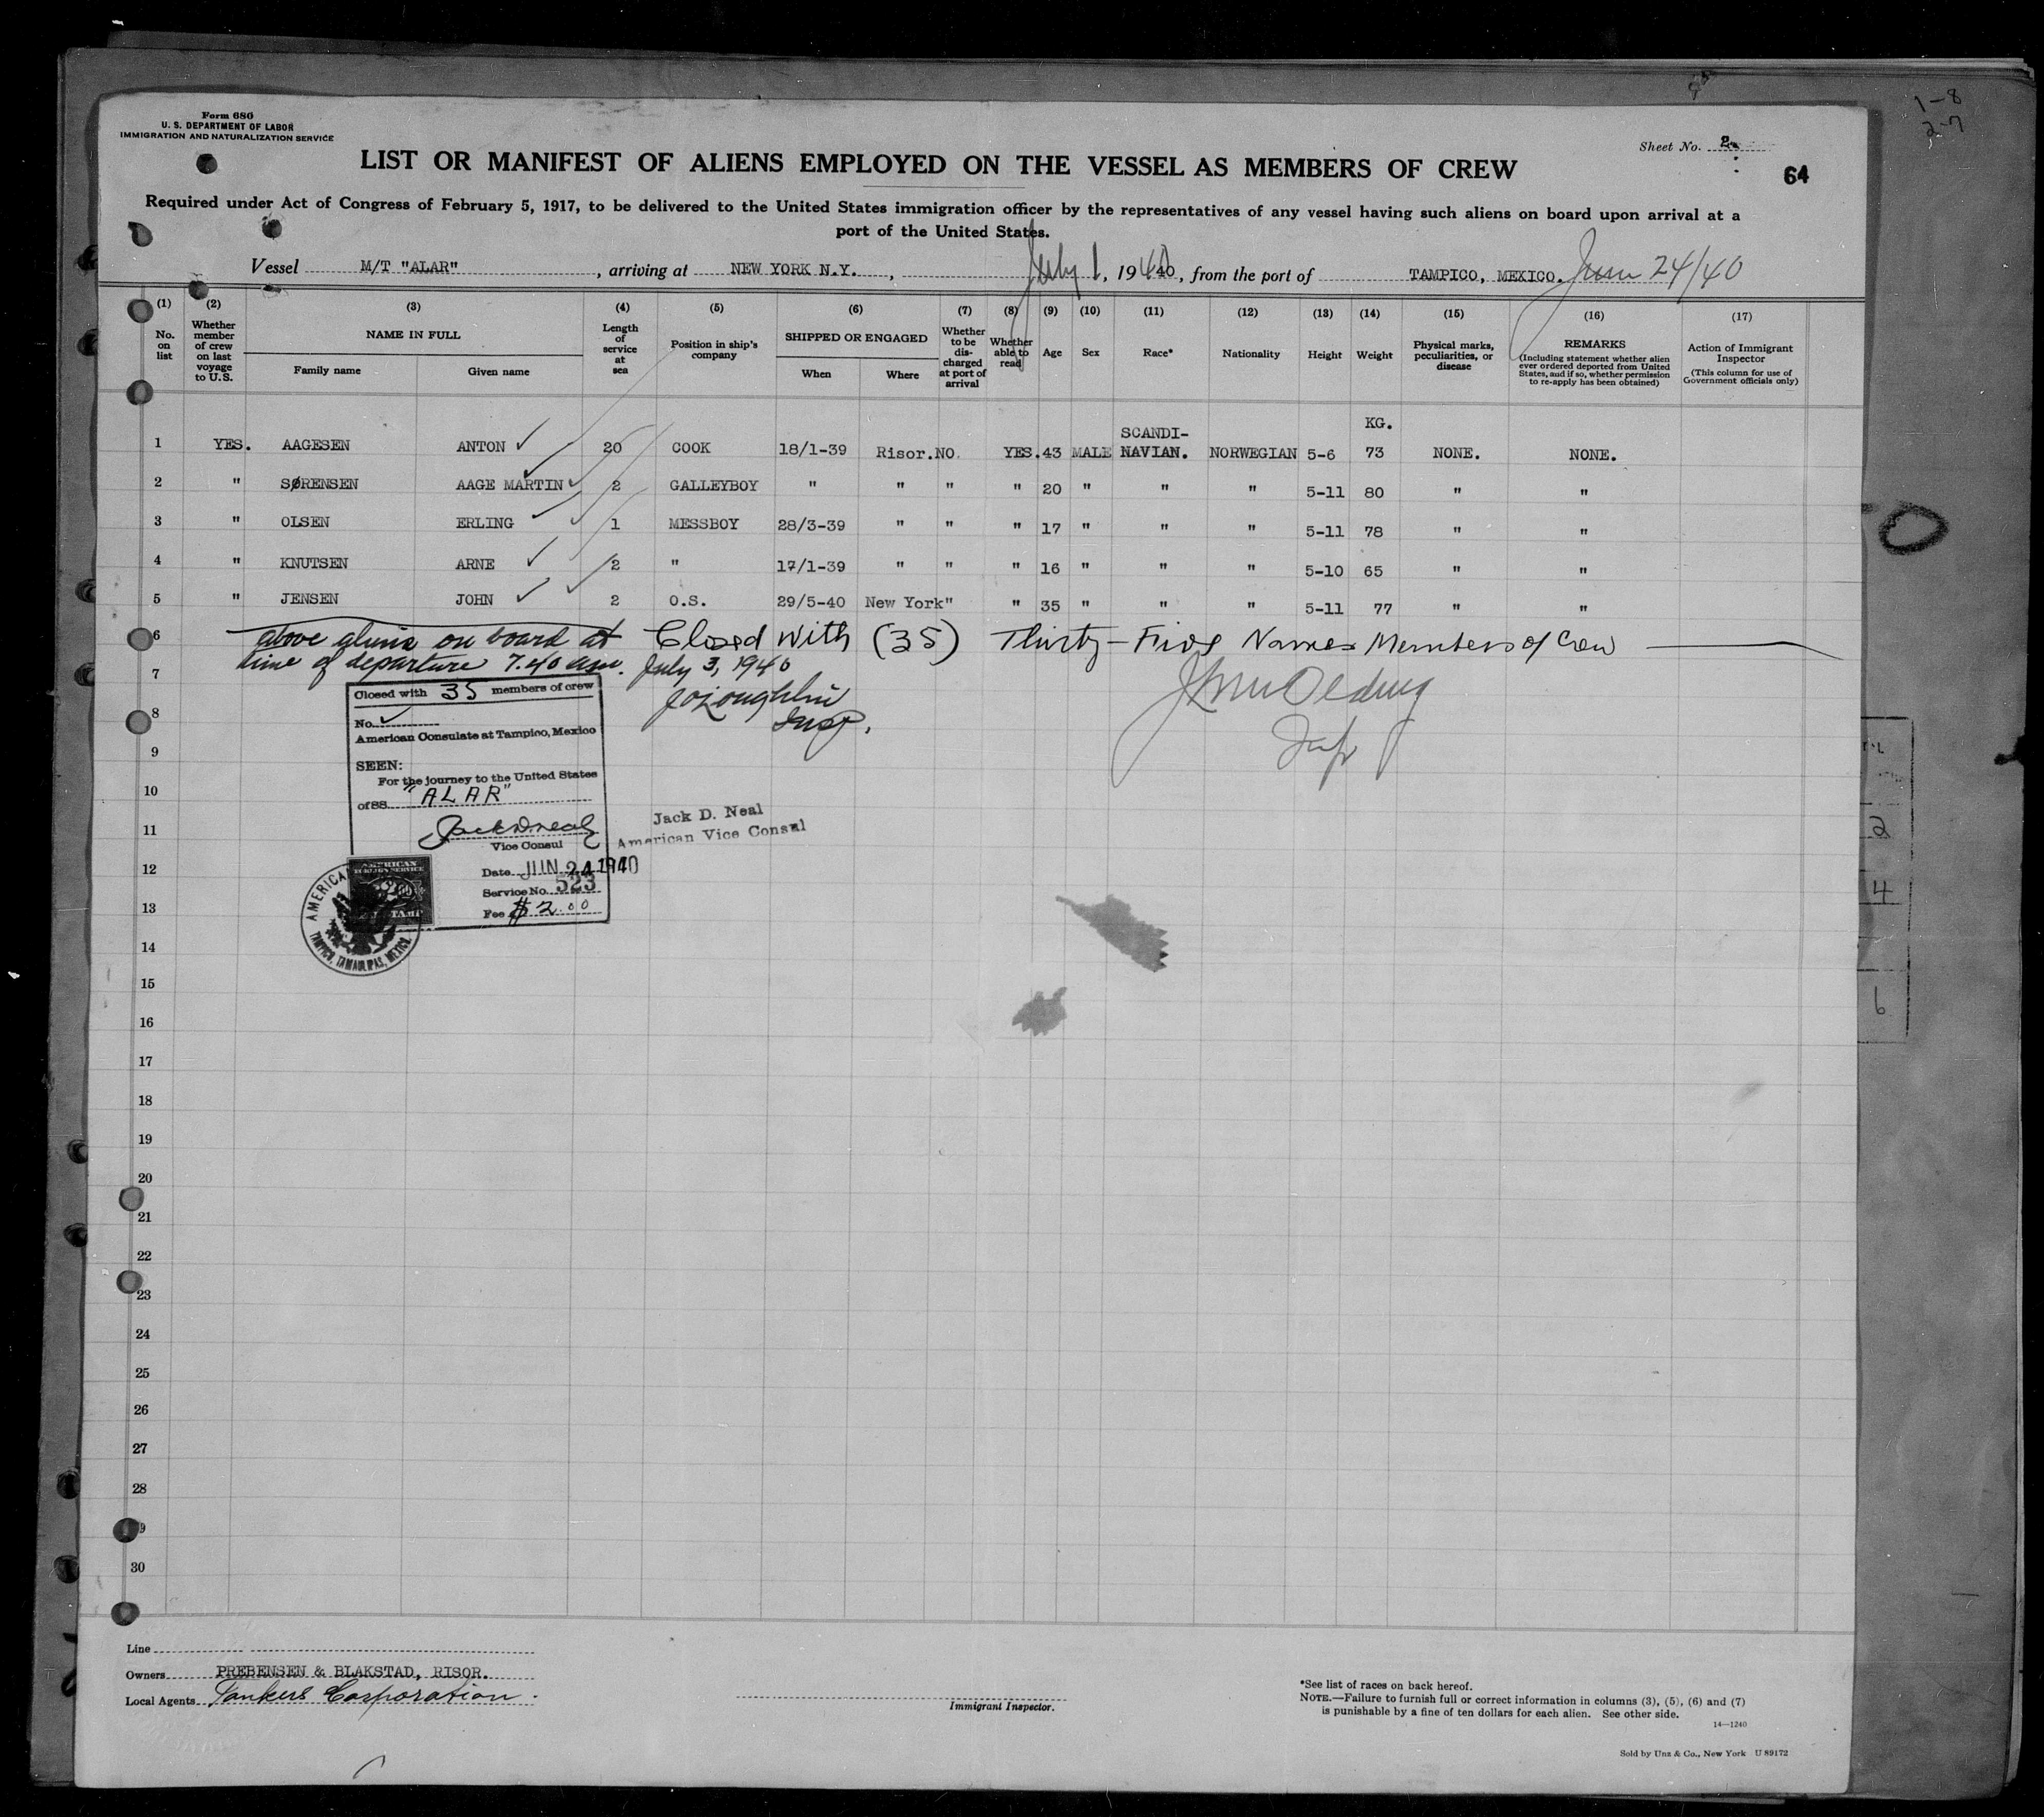 Form 680
U. S. DEPARTMENT OF LABOR
IMMIGRATION AND NATURALIZATION SERVICE
1-8
2-7
Sheet No. 2
64
LIST OR MANIFEST OF ALIENS EMPLOYED ON THE VESSEL AS MEMBERS OF CREW
Required under Act of Congress of February 5, 1917, to be delivered to the United States immigration officer by the representatives of any vessel having such aliens on board upon arrival at a
port of the United States.
Vessel M/T "ALAR", arriving at NEW YORK N.Y., July 1, 1940, from the port of TAMPICO, MEXICO. June 24/40
(1) No. on list
(2) Whether member of crew on last voyage to U.S.
(3) NAME IN FULL
Family name
Given name
(4) Length of service at sea
(5) Position in ship's company
(6) SHIPPED OR ENGAGED
When
Where
(7) Whether to be discharged at port of arrival
(8) Whether able to read
(9) Age
(10) Sex
(11) Race*
(12) Nationality
(13) Height
(14) Weight
(15) Physical marks, peculiarities, or disease
(16) REMARKS (Including statement whether alien ever ordered deported from United States, and if so, whether permission to re-apply has been obtained)
(17) Action of Immigrant Inspector (This column for use of Government officials only)
KG.
SCANDI-
1 YES. AAGESEN ANTON 20 COOK 18/1-39 Risor. NO. YES. 43 MALE NAVIAN. NORWEGIAN 5-6 73 NONE. NONE.
2 " SØRENSEN AAGE MARTIN 2 GALLEYBOY " " " " 20 " " " 5-11 80 " "
3 " OLSEN ERLING 1 MESSBOY 28/3-39 " " " 17 " " " 5-11 78 " "
4 " KNUTSEN ARNE 2 " 17/1-39 " " " 16 " " " 5-10 65 " "
5 " JENSEN JOHN 2 O.S. 29/5-40 New York " " 35 " " " 5-11 77 " "
6 above aliens on board at Closed With (35) Thirty-Five Names Members of Crew
time of departure 7.40 am. July 3, 1940
7
JOLoughlin
Insp.
Insp
Closed with 35 members of crew
No.
American Consulate at Tampico, Mexico
SEEN:
For the journey to the United States
of SS "ALAR"
Jack D. Neal
Vice Consul
Date JUN 24 1940
Service No. 523
Fee $2.00
Jack D. Neal
American Vice Consul
AMERICAN
FOREIGN SERVICE
TAMPICO, TAMAULIPAS, MEXICO.
8
9
10
11
12
13
14
15
16
17
18
19
20
21
22
23
24
25
26
27
28
29
30
2
4
6
Line
Owners PREBENSEN & BLAKSTAD, RISOR.
Local Agents Tankers Corporation.
Immigrant Inspector.
*See list of races on back hereof.
NOTE.—Failure to furnish full or correct information in columns (3), (5), (6) and (7)
is punishable by a fine of ten dollars for each alien. See other side.
14—1240
Sold by Unz & Co., New York U 89172